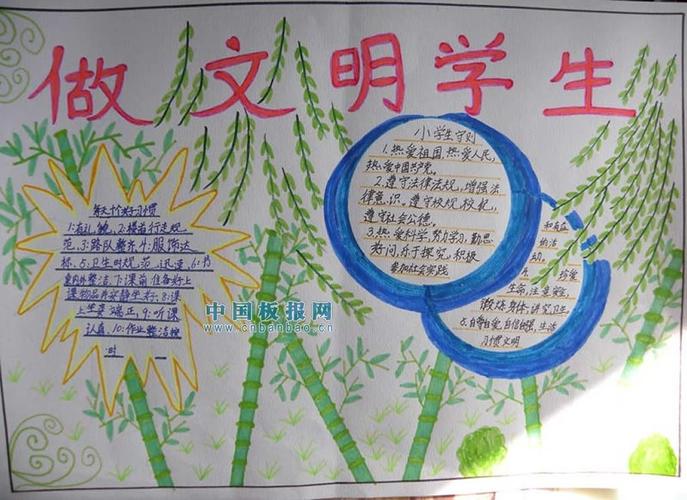 做文明学生
每天十个好习惯
1:有礼貌 2:楼道行走规
范 3:路队整齐 4:服饰达
标 5:卫生
整洁 7:课前准备好上
课物品并安静坐好 8:课
上坐姿端正 9:听课
认真 10:作业整洁按
时
小学生守则
1.热爱祖国,热爱人民,
热爱中国共产党。
2.遵守法律法规,增强法
律意识。遵守校规校纪,
遵守社会公德。
3.热爱科学,努力学习,勤思
好问,乐于探究,积极
参加社会实践
珍爱
生命,注意安全,
锻炼身体,讲究卫生
5.自尊自爱,自信自强,生活
习惯文明
中国板报网
www.cnbanbao.cn